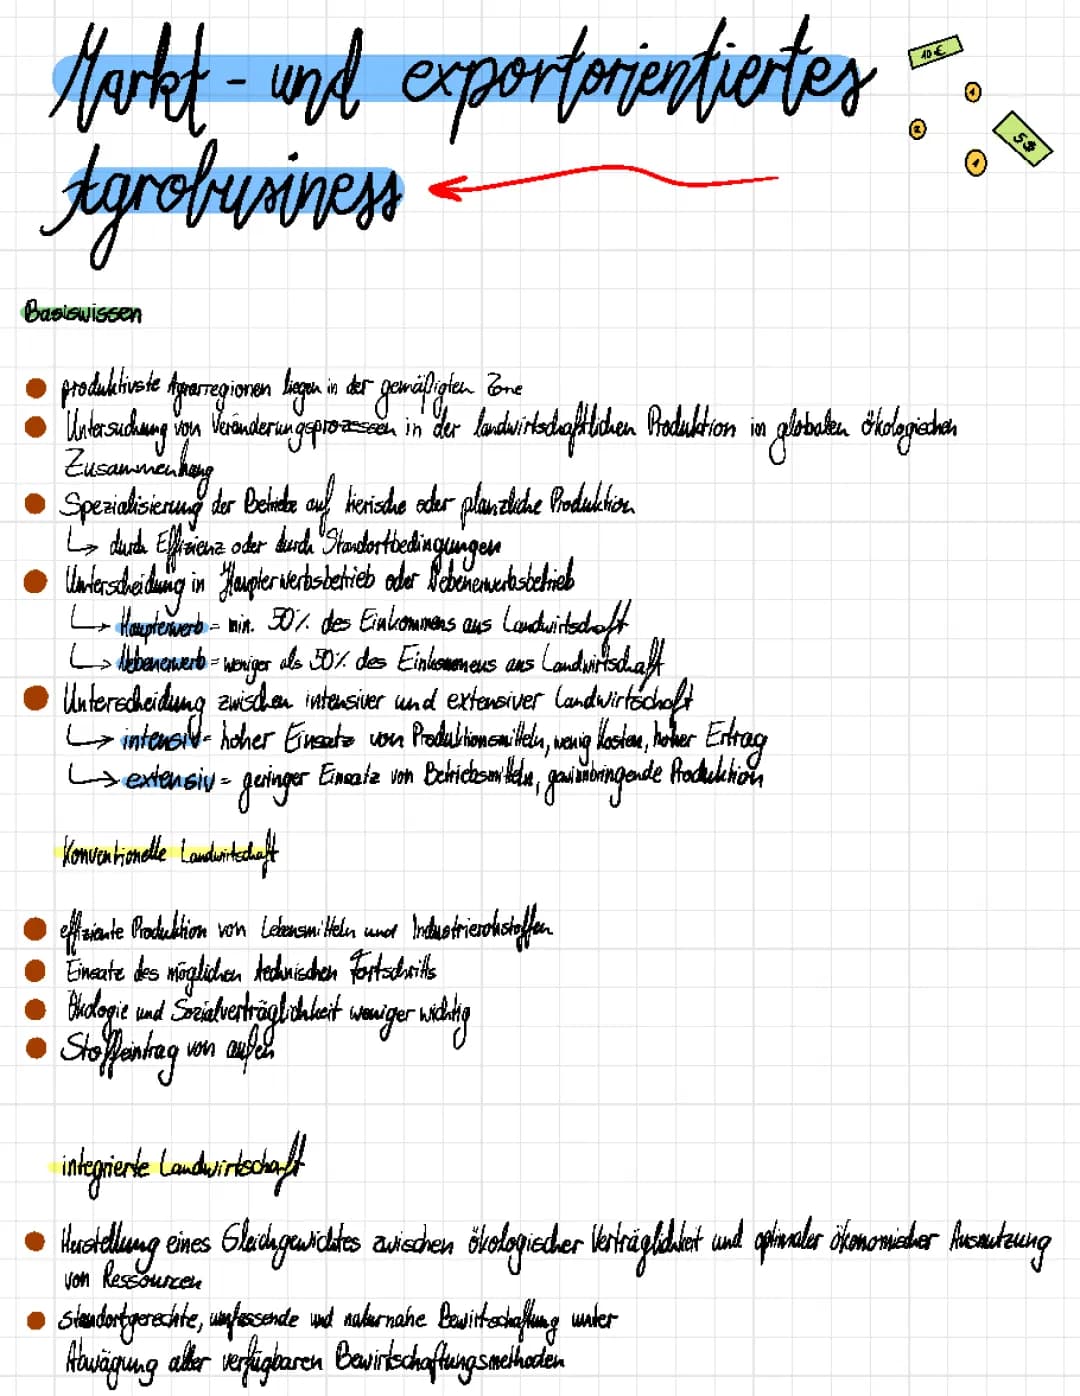 Markt- und exportorientiertes
10€
1
2
5$
1
Agrobusiness
Basiswissen
produktivste Agrarregionen liegen in der gemäßigten Zone
Untersuchung von Veränderungsprozessen in der landwirtschaftlichen Produktion im globalen ökologischen
Zusammenhang
Spezialisierung der Betriebe auf tierische oder planzliche Produktion
↳ durch Effizienz oder durch Standortbedingungen
Unterscheidung in Haupterwerbsbetrieb oder Nebenerwerbsbetrieb
↳ Haupterwerb = min. 50% des Einkommens aus Landwirtschaft
↳ Nebenerwerb = weniger als 50% des Einkommens aus Landwirtschaft
Unterscheidung zwischen intensiver und extensiver Landwirtschaft
↳ intensiv = hoher Einsatz von Produktionsmitteln, wenig Kosten, hoher Ertrag
↳ extensiv = geringer Einsatz von Betriebsmitteln, gewinnbringende Produktion
Konventionelle Landwirtschaft
effiziente Produktion von Lebensmitteln und Industrierohstoffen
Einsatz des möglichen technischen Fortschritts
Ökologie und Sozialverträglichkeit weniger wichtig
Stoffeintrag von außen
integrierte Landwirtschaft
Herstellung eines Gleichgewichtes zwischen ökologischer Verträglichkeit und optimaler ökonomischer Ausnutzung
von Ressourcen
standortgerechte, umfassende und naturnahe Bewirtschaftung unter
Abwägung aller verfügbaren Bewirtschaftungsmethoden